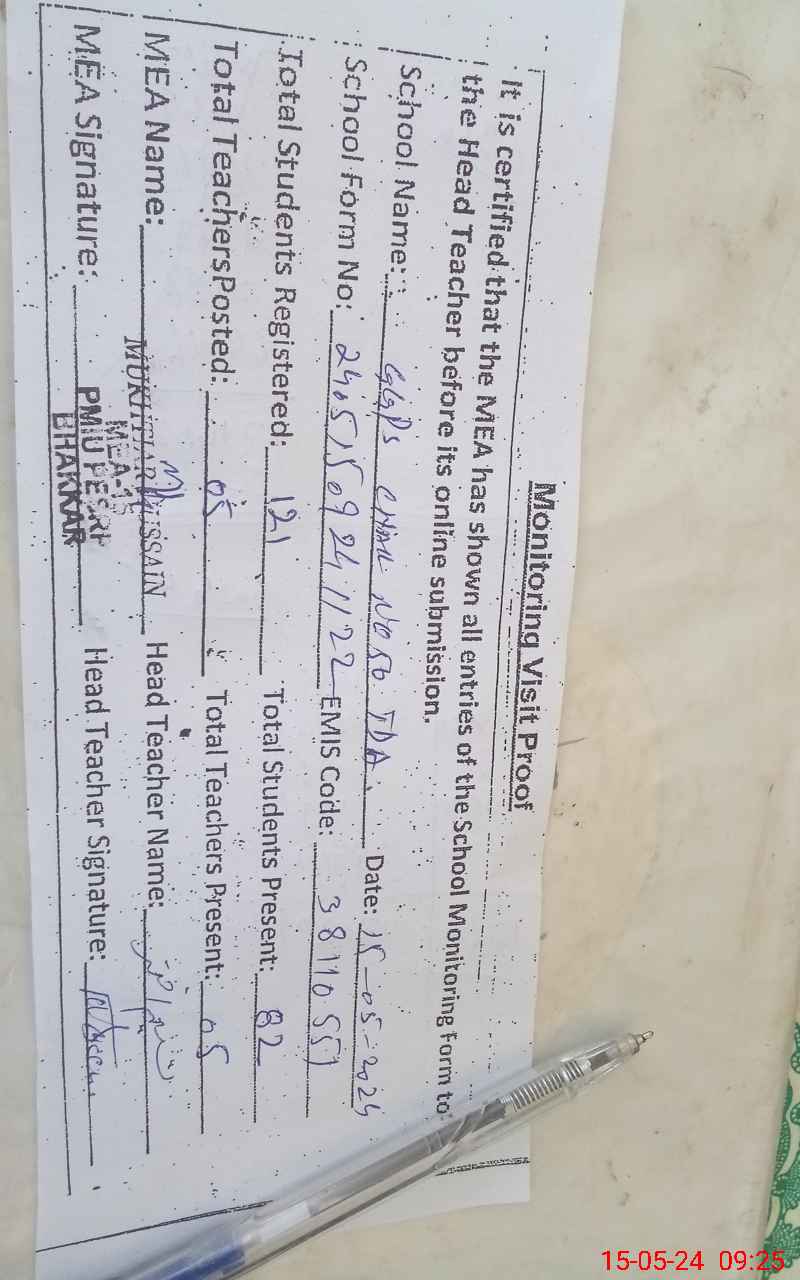 Monitoring Visit Proof
It is certified that the MEA has shown all entries of the School Monitoring Form to
the Head Teacher before its online submission.
School Name: GGPS CHAK NO 50 TDA Date: 15-05-2024
School Form No: EMIS Code: 38110551
Total Students Registered: 121 Total Students Present: 82
Total Teachers Posted: 05 Total Teachers Present: 05
MEA Name: MUKHTIAR HUSSAIN Head Teacher Name:
MEA Signature: Head Teacher Signature:
MEA-
PMIU PESRP
BHAKKAR
15-05-24 09:25